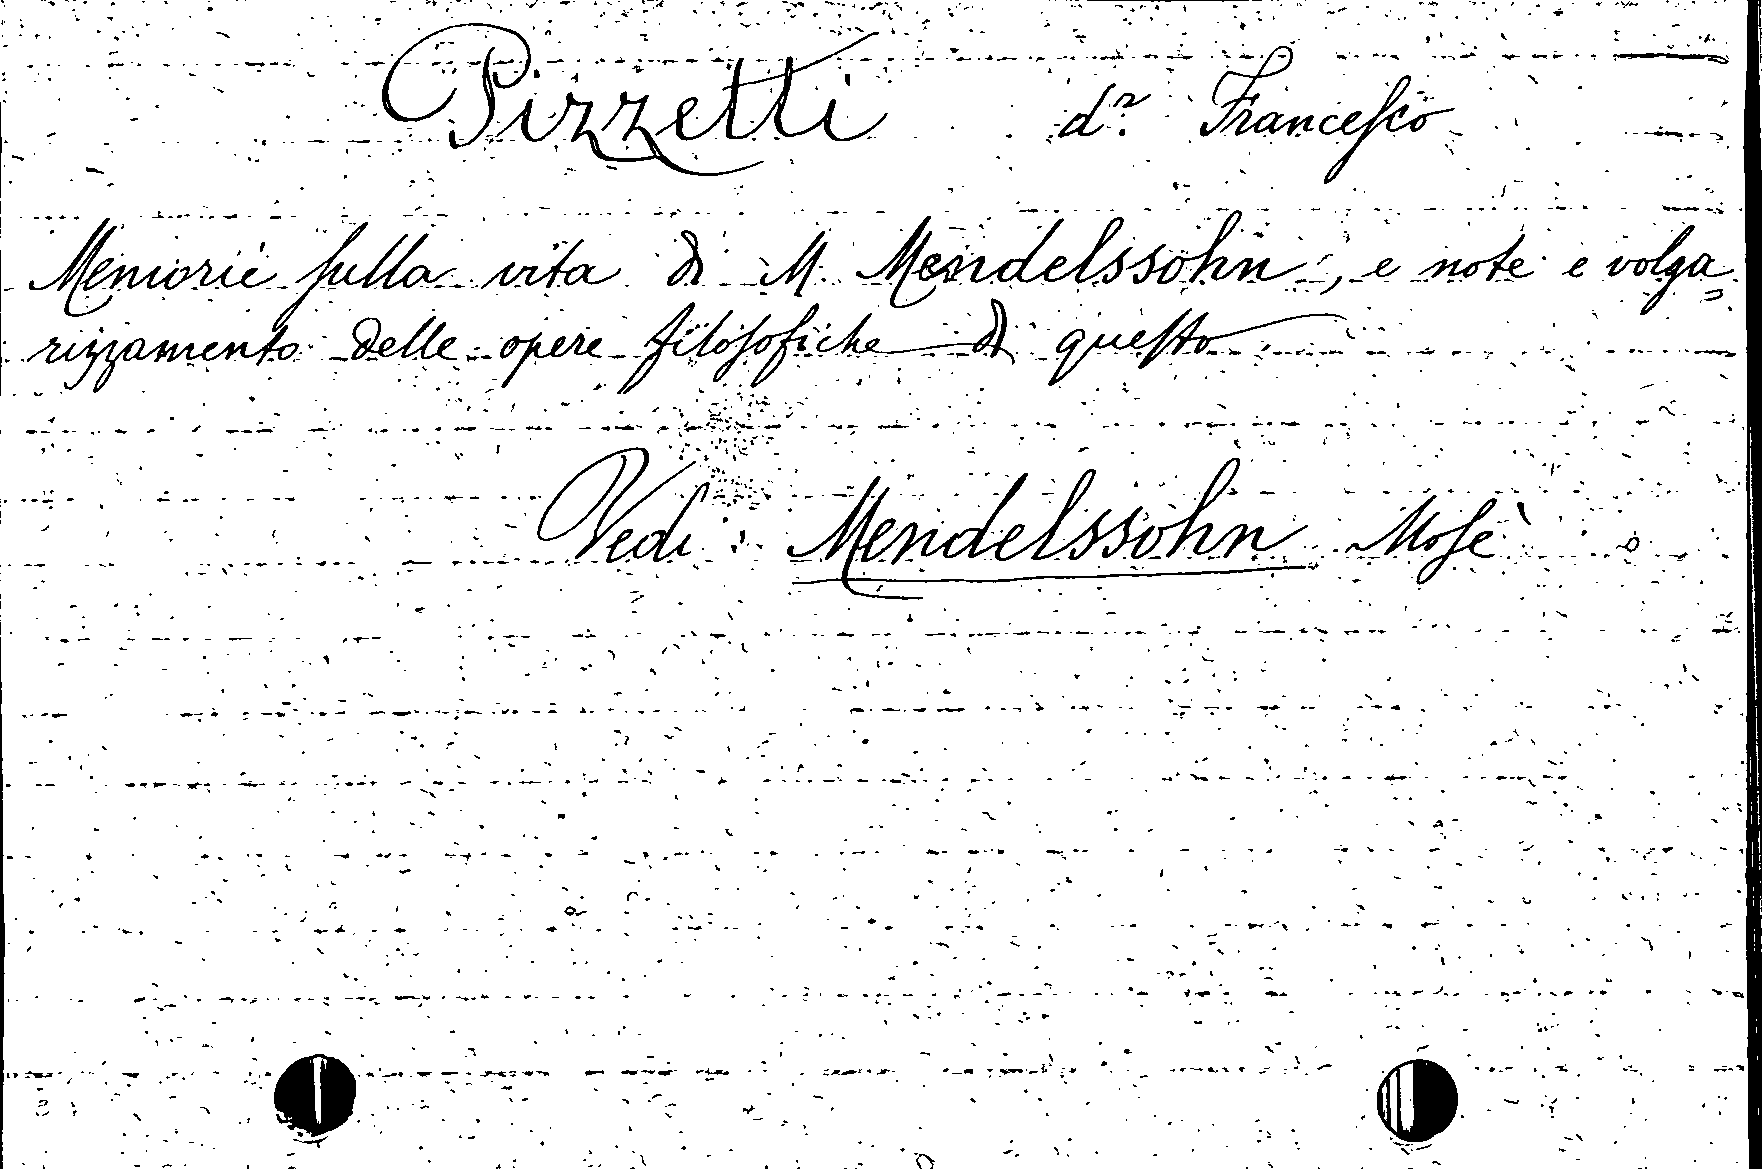 Pizzetti d.r Francesco
Memorie sulla vita di M. Mendelssohn, e note e volga=
rizzamento delle opere filosofiche di questo
Vedi: Mendelssohn Mosè